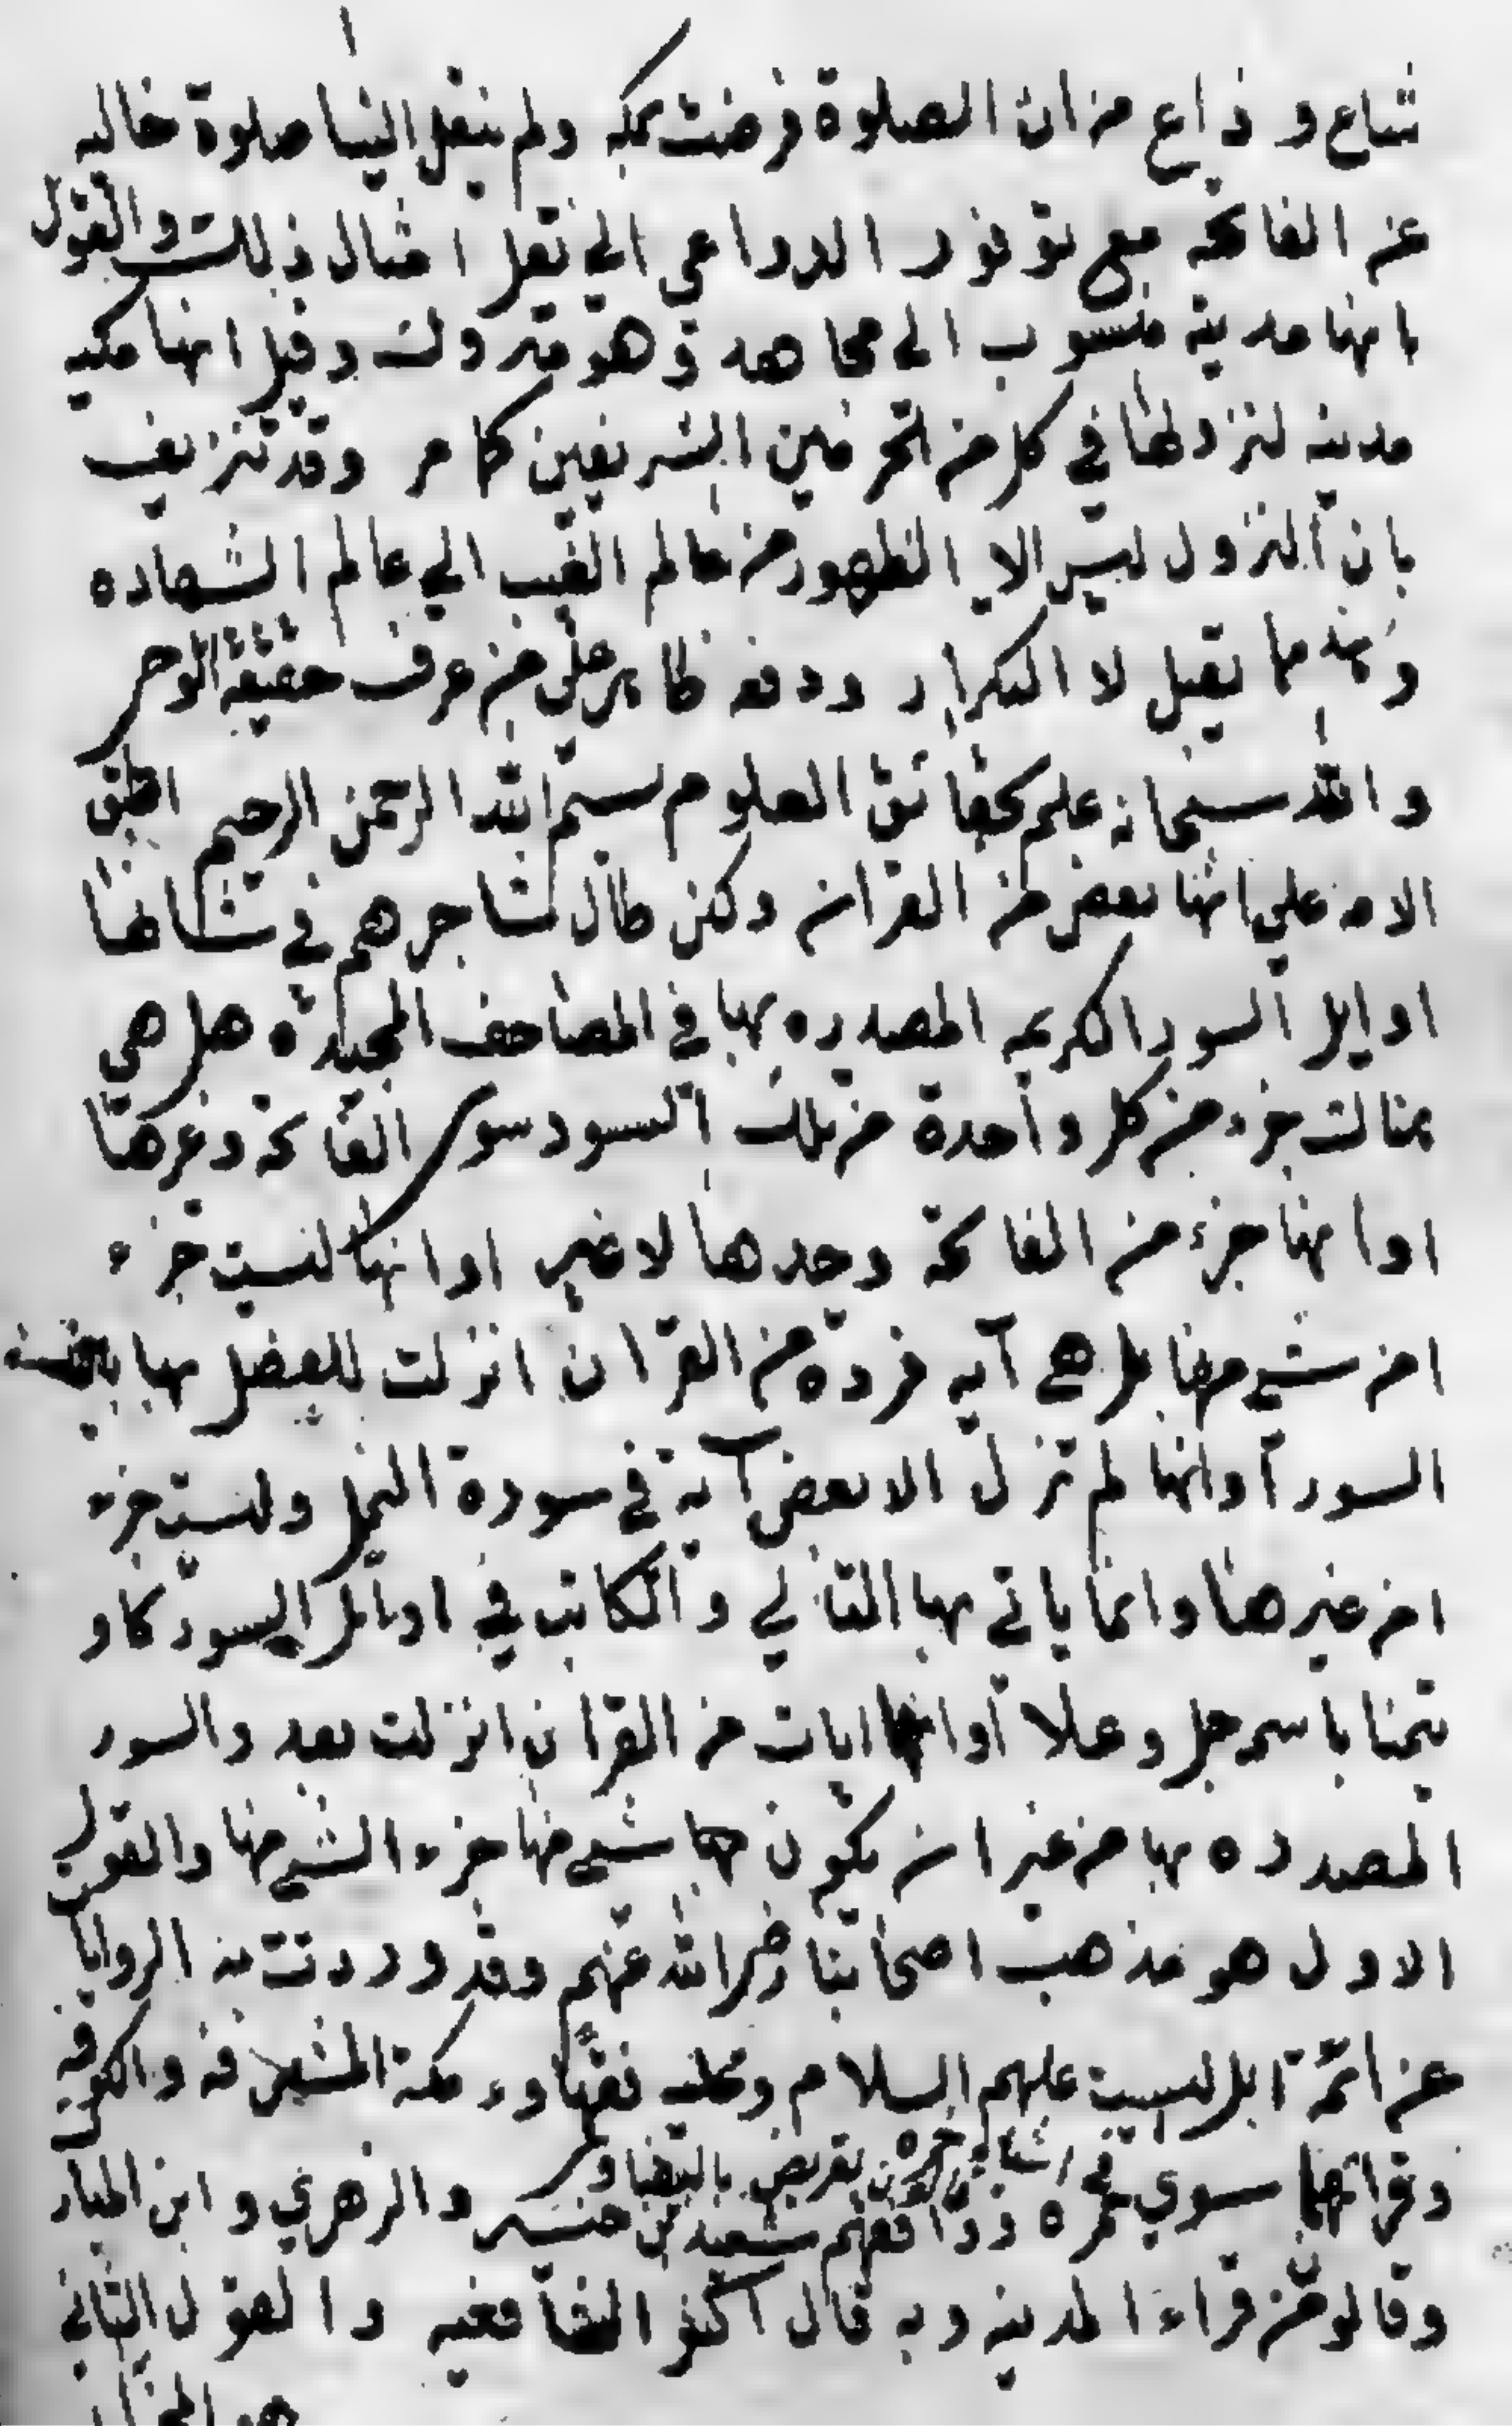 شاع و ذاع من ان الصلوة فرضت بمكه ولم ينقل الينا صلوة خاليه
عن الفاتحه مع توفور الدواعي الي نقل امثال ذلك والقول
بانها مدينة منسوب الى مجاهد وهو متروك وقيل انها مكيه
مدينه لنزولها في كل من الحرمين الشريفين كما مر وقد تزيف
بان النزول ليس الا الظهور من عالم الغيب الي عالم الشهاده
وهذا مما يقبل لا التكرار ودفعه ظاهر علي من عرف حقيقة الوحي
والله سبحانه عليم بحقائق العلوم بسم الله الرحمن الرحيم اطبق
الامه علي انها بعض من القران ولكن طال تشاجرهم في شانها
اوايل السور الكريمه المصدره بها في المصاحف المجيده هل هي
هنالك جزء من كل واحدة من تلك السور سوى الفاتحة وغيرها
او انها جزء من الفاتحة وحدها لا غير او انها ليست جزء
من شي منها بل هي آيه فرده من القران انزلت للفصل بها بين
السور او انها لم تنزل الا بعض آية في سورة النمل وليست جزء
من غيرها وانما ياتي بها التالي والكاتب في اوايل السور كاو
تيمنا باسمه جل وعلا او انها ايات من القران انزلت بعد والسور
المصدره بها من غير ان يكون شي منها جزء الشي منها والقول
الاول هو مذهب اصحابنا رضي الله عنهم وقد وردت به الروايا
عن ائمة اهل البيت عليهم السلام وعليه فقهاء مكة المشرفه والكوفه
وقرائهما سوي حمزه ووافقهم سعيد بن جبير والزهري وابن المبار
في تعريض بالبيضاوي
وقالون من قراء المدينه وبه قال اكثر الشافعيه والقول الثاني